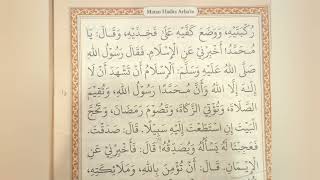 Matan Hadits Arba'in
رُكْبَتَيْهِ، وَوَضَعَ كَفَّيْهِ عَلَى فَخِذَيْهِ، وَقَالَ: يَا
مُحَمَّدُ أَخْبِرْنِي عَنِ الْإِسْلَامِ. فَقَالَ رَسُوْلُ اللهِ
صَلَّى اللهُ عَلَيْهِ وَسَلَّمَ: اَلْإِسْلَامُ أَنْ تَشْهَدَ أَنْ لَا
إِلَهَ إِلَّا اللهُ وَأَنَّ مُحَمَّدًا رَسُوْلُ اللهِ، وَتُقِيْمَ
الصَّلَاةَ، وَتُؤْتِيَ الزَّكَاةَ، وَتَصُوْمَ رَمَضَانَ، وَتَحُجَّ
الْبَيْتَ إِنِ اسْتَطَعْتَ إِلَيْهِ سَبِيْلًا. قَالَ: صَدَقْتَ.
فَعَجِبْنَا لَهُ يَسْأَلُهُ وَيُصَدِّقُهُ! قَالَ: فَأَخْبِرْنِي عَنِ
الْإِيْمَانِ. قَالَ: أَنْ تُؤْمِنَ بِاللهِ، وَمَلَائِكَتِهِ،